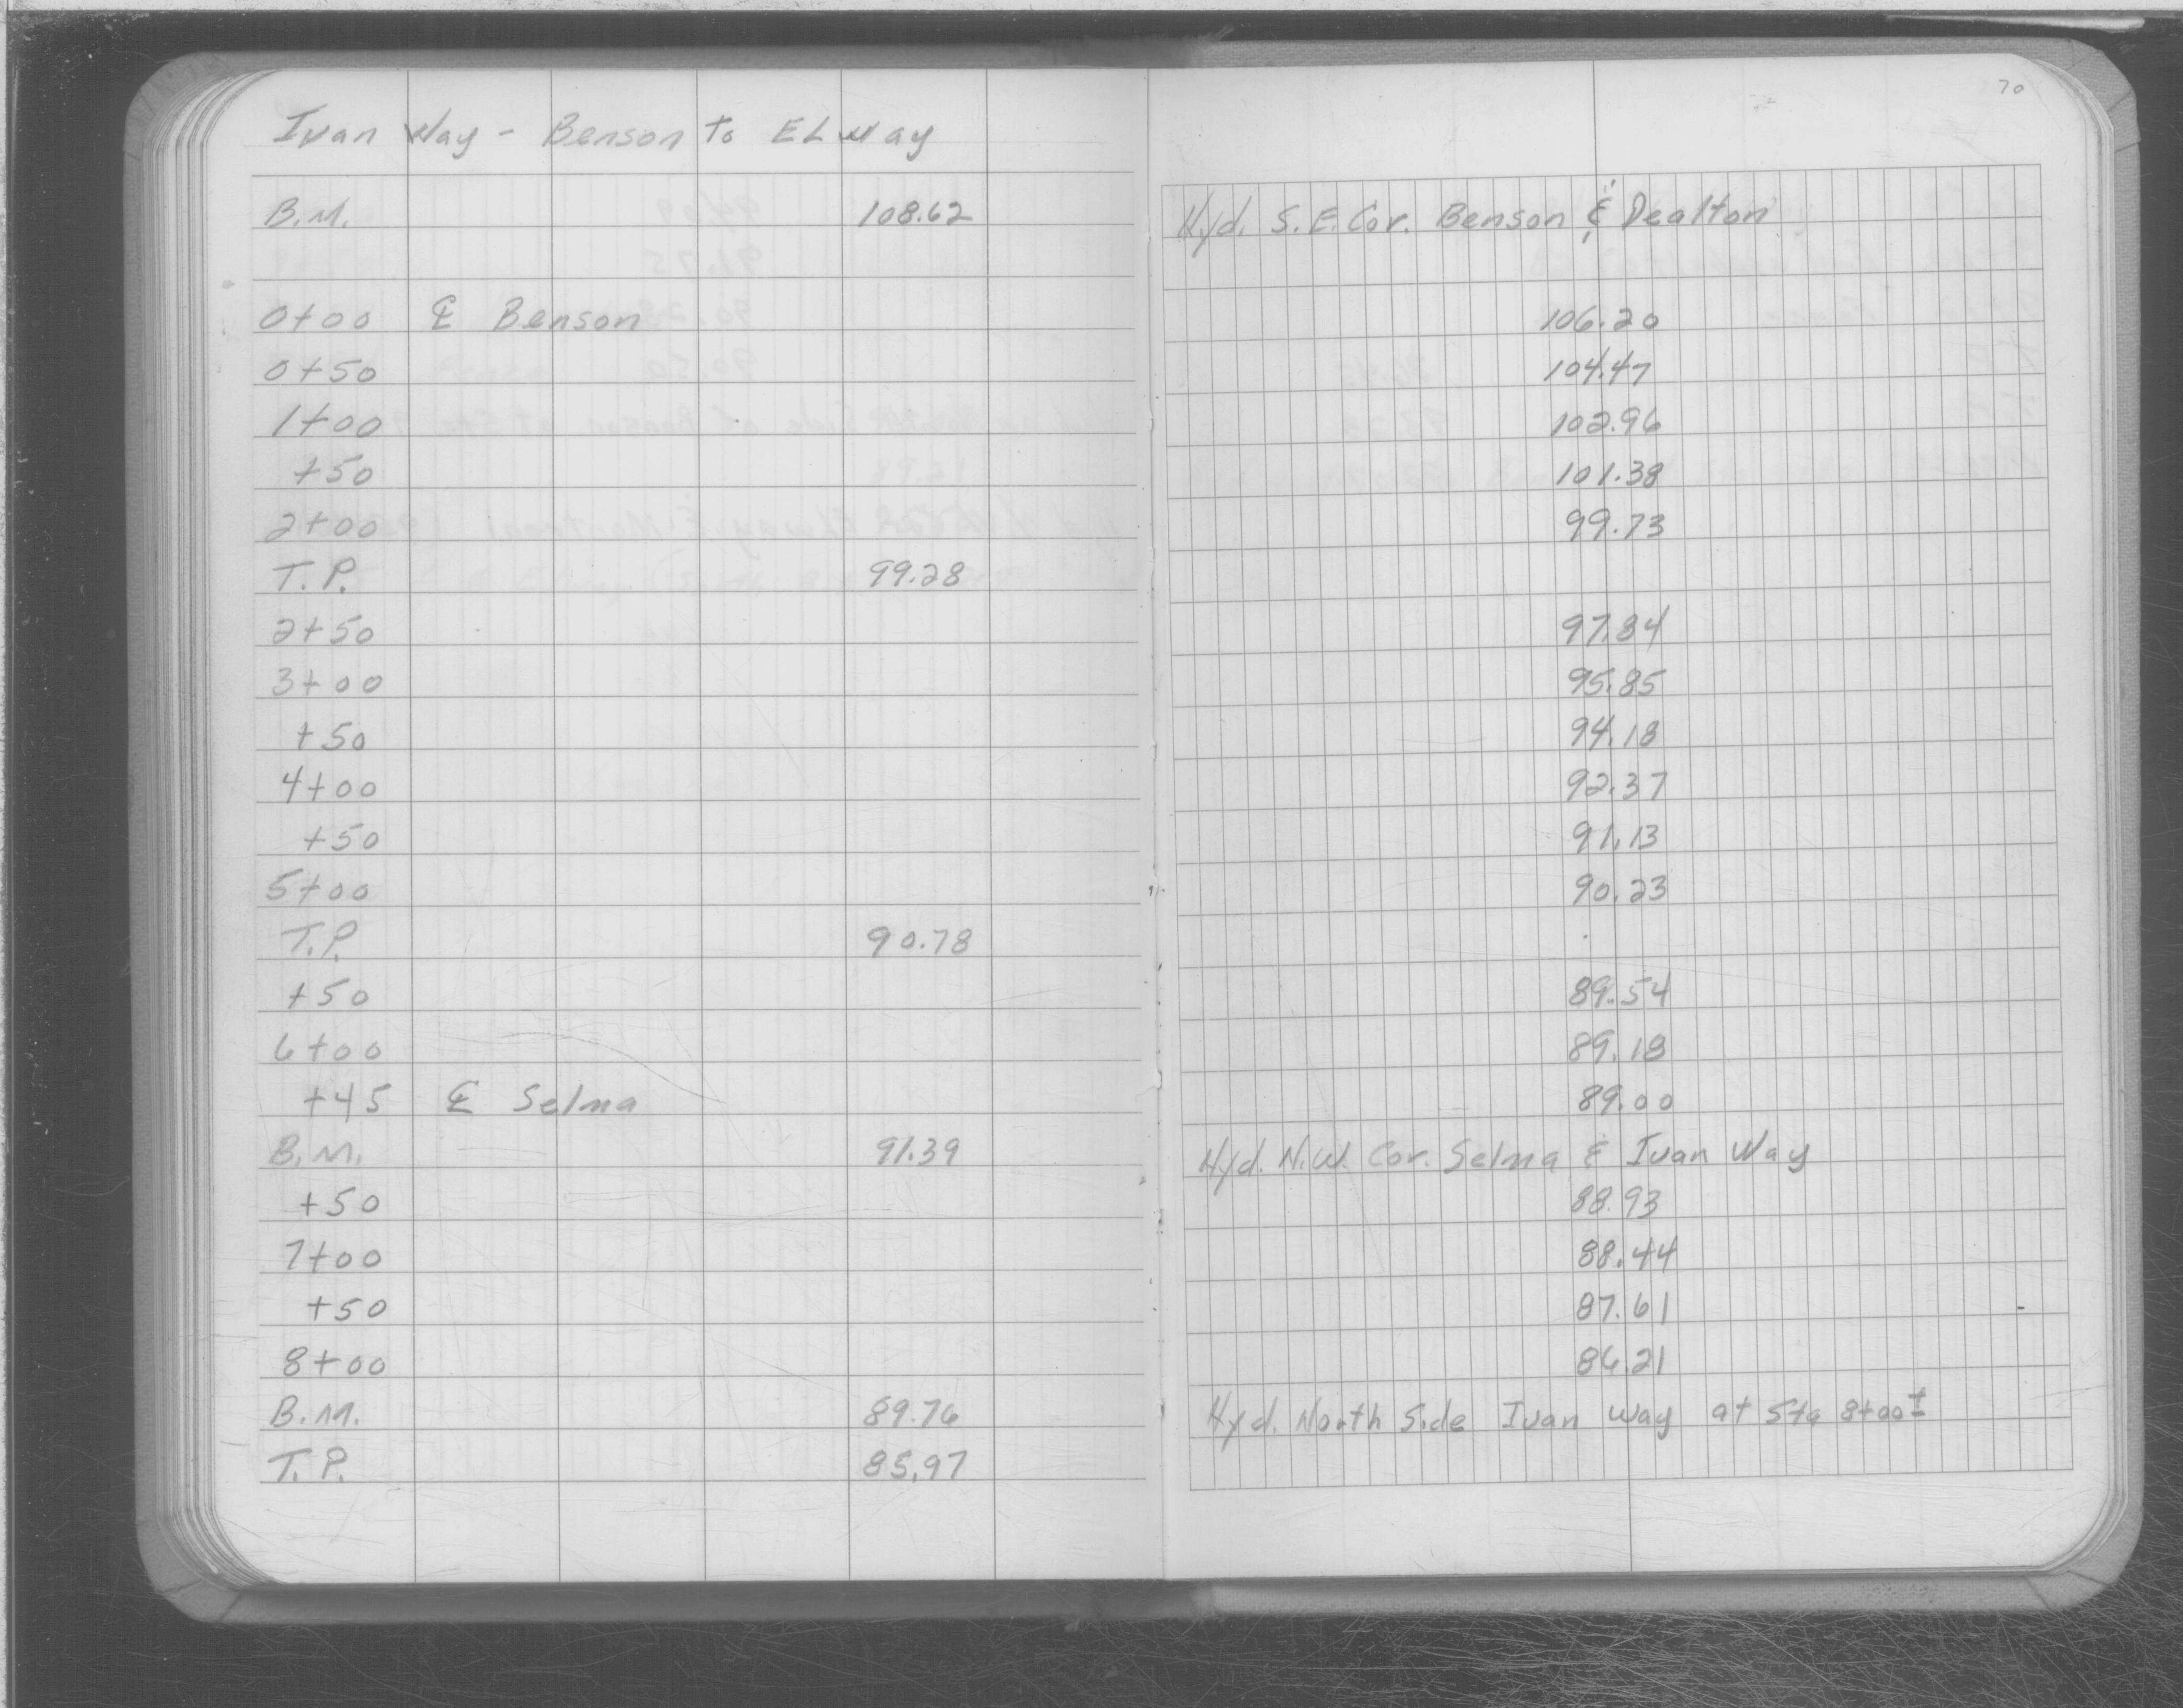 70
Ivan Way - Benson to ELway
B.M. 108.62 Hyd. S.E. Cor. Benson & Dealton
0+00 ℄ Benson 106.20
0+50 104.47
1+00 102.96
+50 101.38
2+00 99.73
T.P. 99.28
2+50 97.84
3+00 95.85
+50 94.18
4+00 92.37
+50 91.13
5+00 90.23
T.P. 90.78
+50 89.54
6+00 89.18
+45 ℄ Selma 89.00
B.M. 91.39 Hyd. N.W. Cor. Selma & Ivan Way
+50 88.93
7+00 88.44
+50 87.61
8+00 86.21
B.M. 89.76 Hyd. North Side Ivan Way at Sta 8+00±
T.P. 85.97